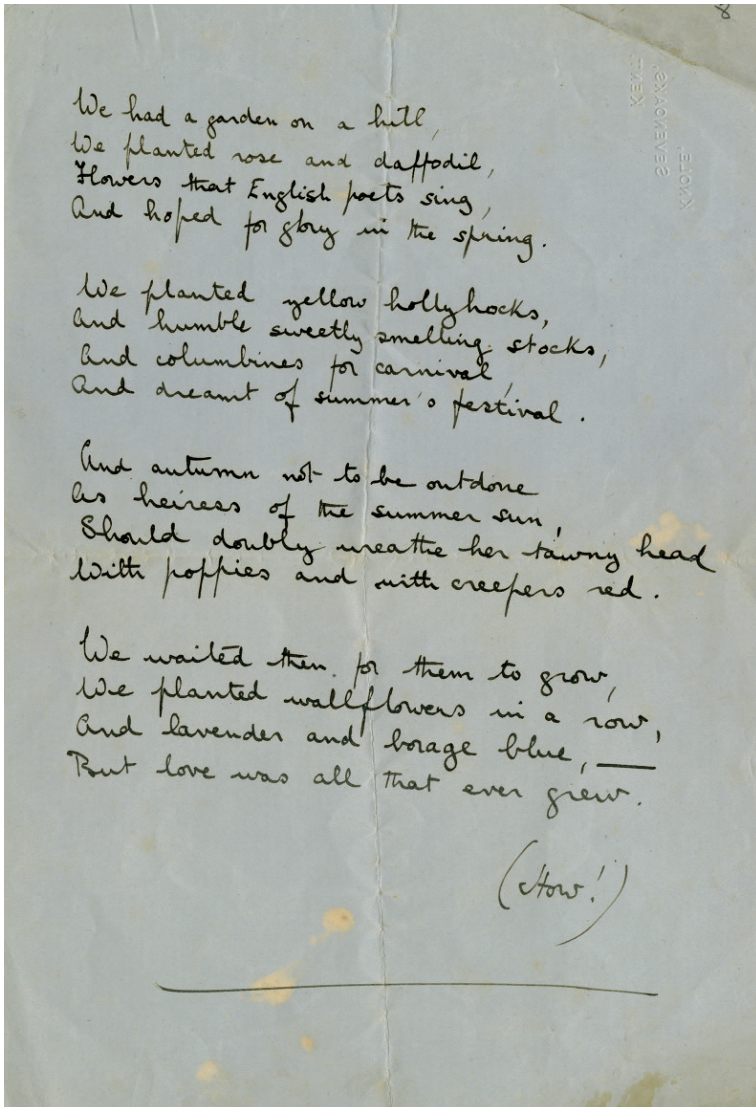 KNOLE,
SEVENOAKS,
KENT.
We had a garden on a hill,
We planted rose and daffodil,
Flowers that English poets sing,
And hoped for glory in the spring.
We planted yellow hollyhocks,
And humble sweetly smelling stocks,
And columbines for carnival,
And dreamt of summer's festival.
And autumn not to be outdone
As heiress of the summer sun,
Should doubly wreathe her tawny head
With poppies and with creepers red.
We waited then for them to grow,
We planted wallflowers in a row,
And lavender and borage blue, —
But love was all that ever grew.
(How!)